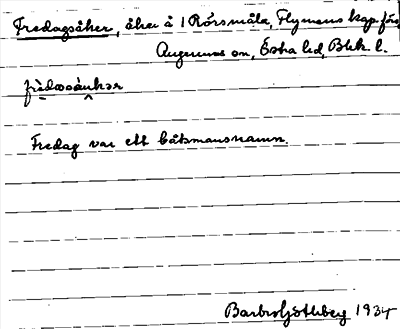 Fredagsåker, åker å 1 Rörsmåla, Flymens kap.förs.
Augerums sn, Östra hd, Blek. l.
frèdasåkər
Fredag var ett båtsmansnamn.
Barbro Götlberg 1934